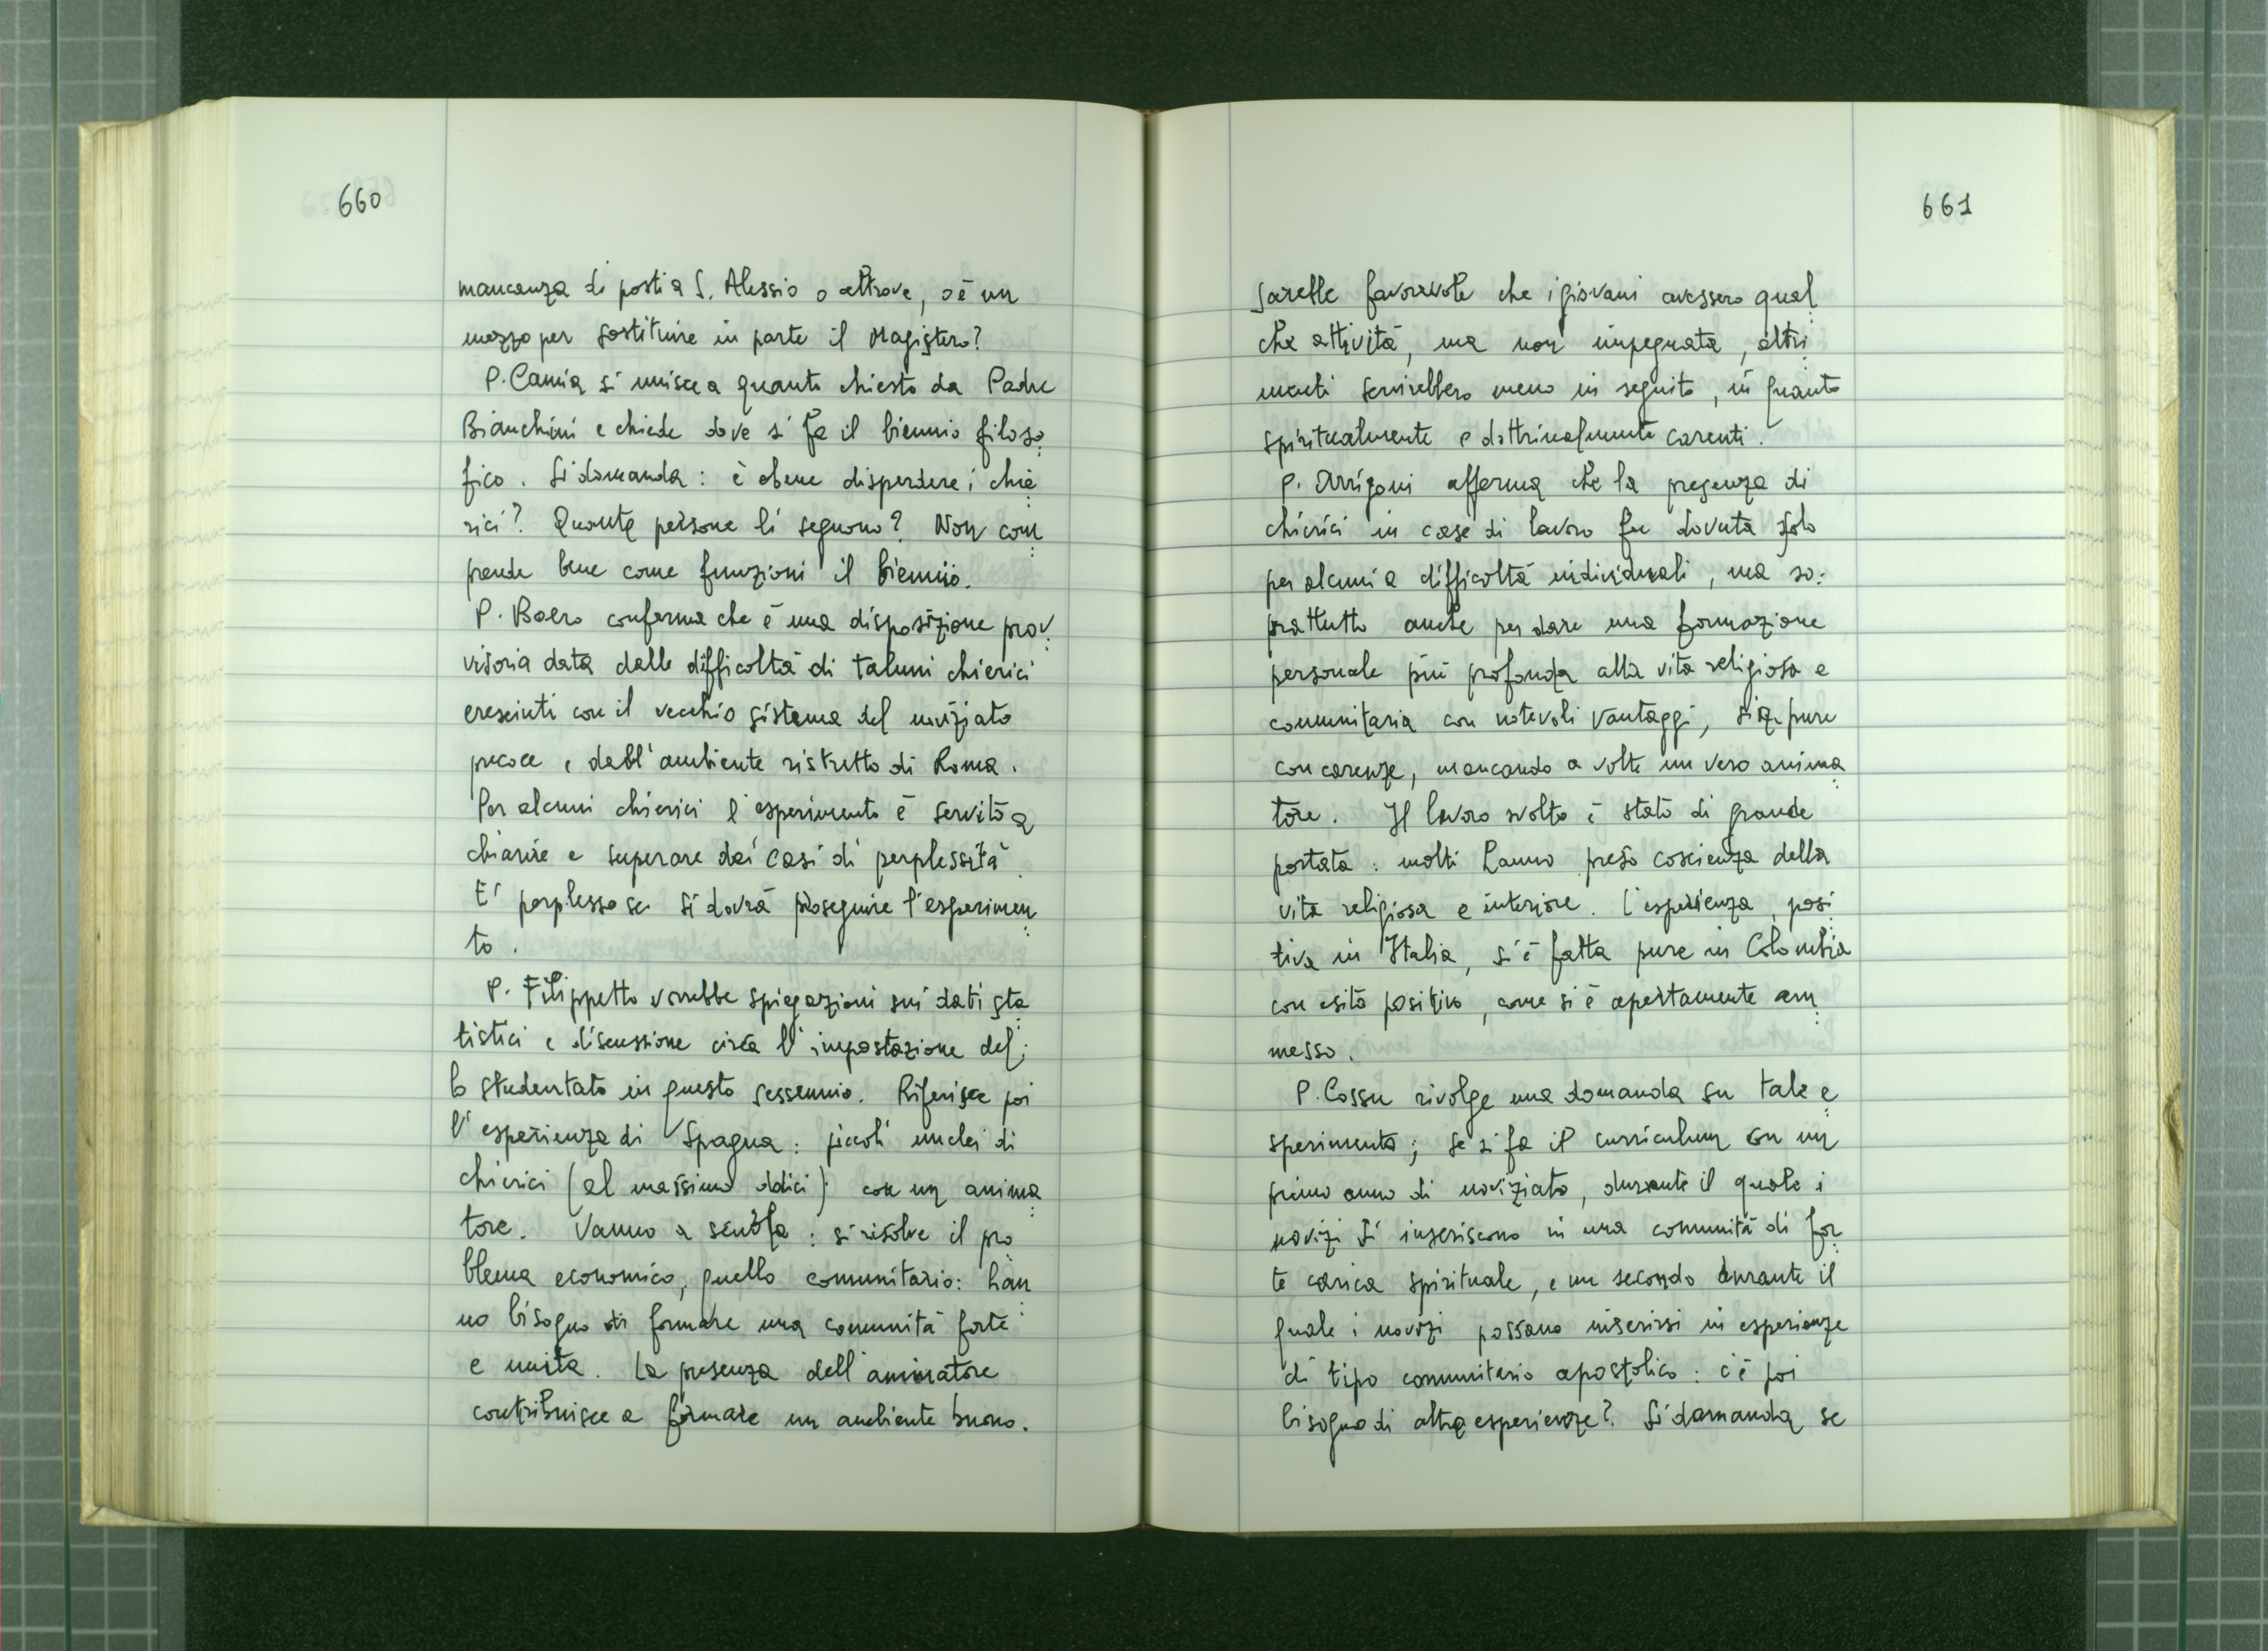 660
mancanza di posti a S. Alessio o altrove, o è un
mezzo per sostituire in parte il Magistero?
P. Camia si unisce a quanto chiesto da Padre
Bianchini e chiede dove si fa il biennio filoso
fico. Si domanda: è bene disperdere i chie
rici? Quante persone li seguono? Non com
prende bene come funzioni il biennio.
P. Boero conferma che è una disposizione prov
visoria data dalle difficoltà di taluni chierici
cresciuti con il vecchio sistema del noviziato
precoce e dall'ambiente ristretto di Roma.
Per alcuni chierici l'esperimento è servito a
chiarire e superare dei casi di perplessità.
E' perplesso se si dovrà proseguire l'esperimen
to.
P. Filippetto vorrebbe spiegazioni sui dati sta
tistici e discussione circa l'impostazione del
lo studentato in questo sessennio. Riferisce poi
l'esperienza di Spagna: piccoli nuclei di
chierici (al massimo dodici) con un anima
tore. Vanno a scuola: si risolve il pro
blema economico, quello comunitario: han
no bisogno di formare una comunità forte
e unita. La presenza dell'animatore
contribuisce a formare un ambiente buono.
661
Sarebbe favorevole che i giovani avessero qual
che attività, ma non impegnata, altri
menti servirebbero meno in seguito, in quanto
spiritualmente e dottrinalmente carenti.
P. Arrigoni afferma che la presenza di
chierici in case di lavoro fu dovuta solo
per alcuni a difficoltà individuali, ma so
prattutto anche per dare una formazione
personale più profonda alla vita religiosa e
comunitaria con notevoli vantaggi, sia pure
con carenze, mancando a volte un vero anima
tore. Il lavoro svolto è stato di grande
portata: molti hanno preso coscienza della
vita religiosa e interiore. L'esperienza, posi
tiva in Italia, s'è fatta pure in Colombia
con esito positivo, come si è apertamente am
messo.
P. Cossu rivolge una domanda su tale e
sperimento; se si fa il curriculum con un
primo anno di noviziato, durante il quale i
novizi si inseriscono in una comunità di for
te carica spirituale, e un secondo durante il
quale i novizi possano inserirsi in esperienze
di tipo comunitario apostolico: c'è poi
bisogno di altre esperienze? Si domanda se